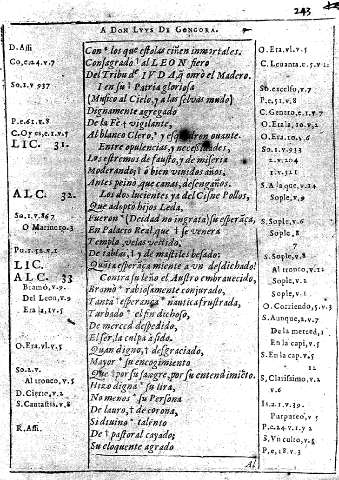 243
A DON LVYS DE GONGORA.
D. Assi
Con los que estolas ciñen inmortales.
O. Era, vl. v. 5
Co, e. 24. v. 7
Consagrado al LEON fiero
C. Leuanta, c. 5. v. 2
Del Tribu de IVDA, q onrò el Madero.
So. 1. v 937
En su Patria gloriosa
So. excelso, v. 7
(Musico al Cielo, y a las selvas mudo)
P. e. 51. v. 8
Dignamente agregado
C. Gentro, e. 1. v. 7
P. e. 61. v. 8
De la Fè vigilante,
O. Era la, 10. v. 2
C. O, e. 1. v. 5
Al blanco Clero, y
O. Era, 10. v. 6
LIC. 31.
Entre opulencias, y necesidades,
So. 1. v. 933
Los estremos de fausto, y de miseria
2. v. 204
Moderando; ò bien vinidos años,
1. v. 321
Antes peino que canas, desengaños.
S. A la que, v. 24
ALC. 32.
Los dos lucientes ya del Cisne Pollos,
Sople, v. 9
Que adoptò hijos Leda,
So. 1. v. 867
Fueron (Deidad no ingrata) su esperãça,
S. Sople, v. 6
O Marinero. 3
En Palacio Real que se venera
Sople, 8
Templo, velas vestido,
7
Pu. 1. 52. v. 1
De tablas, y de mastiles besado:
S. Sople, v. 8
LIC.
Quiça esperança miente a vn desdichado!
Al tronco, v. 12
ALC. 33
Contra su leño el Austro embravecido,
Sople, v. 2
Bramò, v. 9.
Bramò rabiosamente conjurado,
Sople, v. 1
Del Leon, v. 9
Tanta esperança nautica frustrada,
O. Corriendo, 5. v. 3
Era la, 1 v. 5
Turbado el fin dichoso,
S. Aunque, 2. v. 7
De merced despedido,
De la merced, 1
El ser, la culpa à sido.
En la capi, v. 5
O. Era, vl. v. 5
Quan digno, desgraciado,
S. En la cap. v. 5
Mayor su encogimiento
12
So. 2. v.
Que por su sangre, por su entendimiẽto.
S. Clarissimo, v. 2
Al tronco, v. 5
Hizo digna su lira,
v. 6
D. Cierto, v. 2
No menos su Persona
Is. 2. 1. v. 39.
S. Cantastis, v. 8
De lauro, de corona,
Purpureo, v. 5
Si diuino talento
P. e. 24. v. 1 y 2
R. Assi.
De pastoral cayado;
S. Vn culto, v. 5
Su eloquente agrado
P. e, 18. v. 3
Al